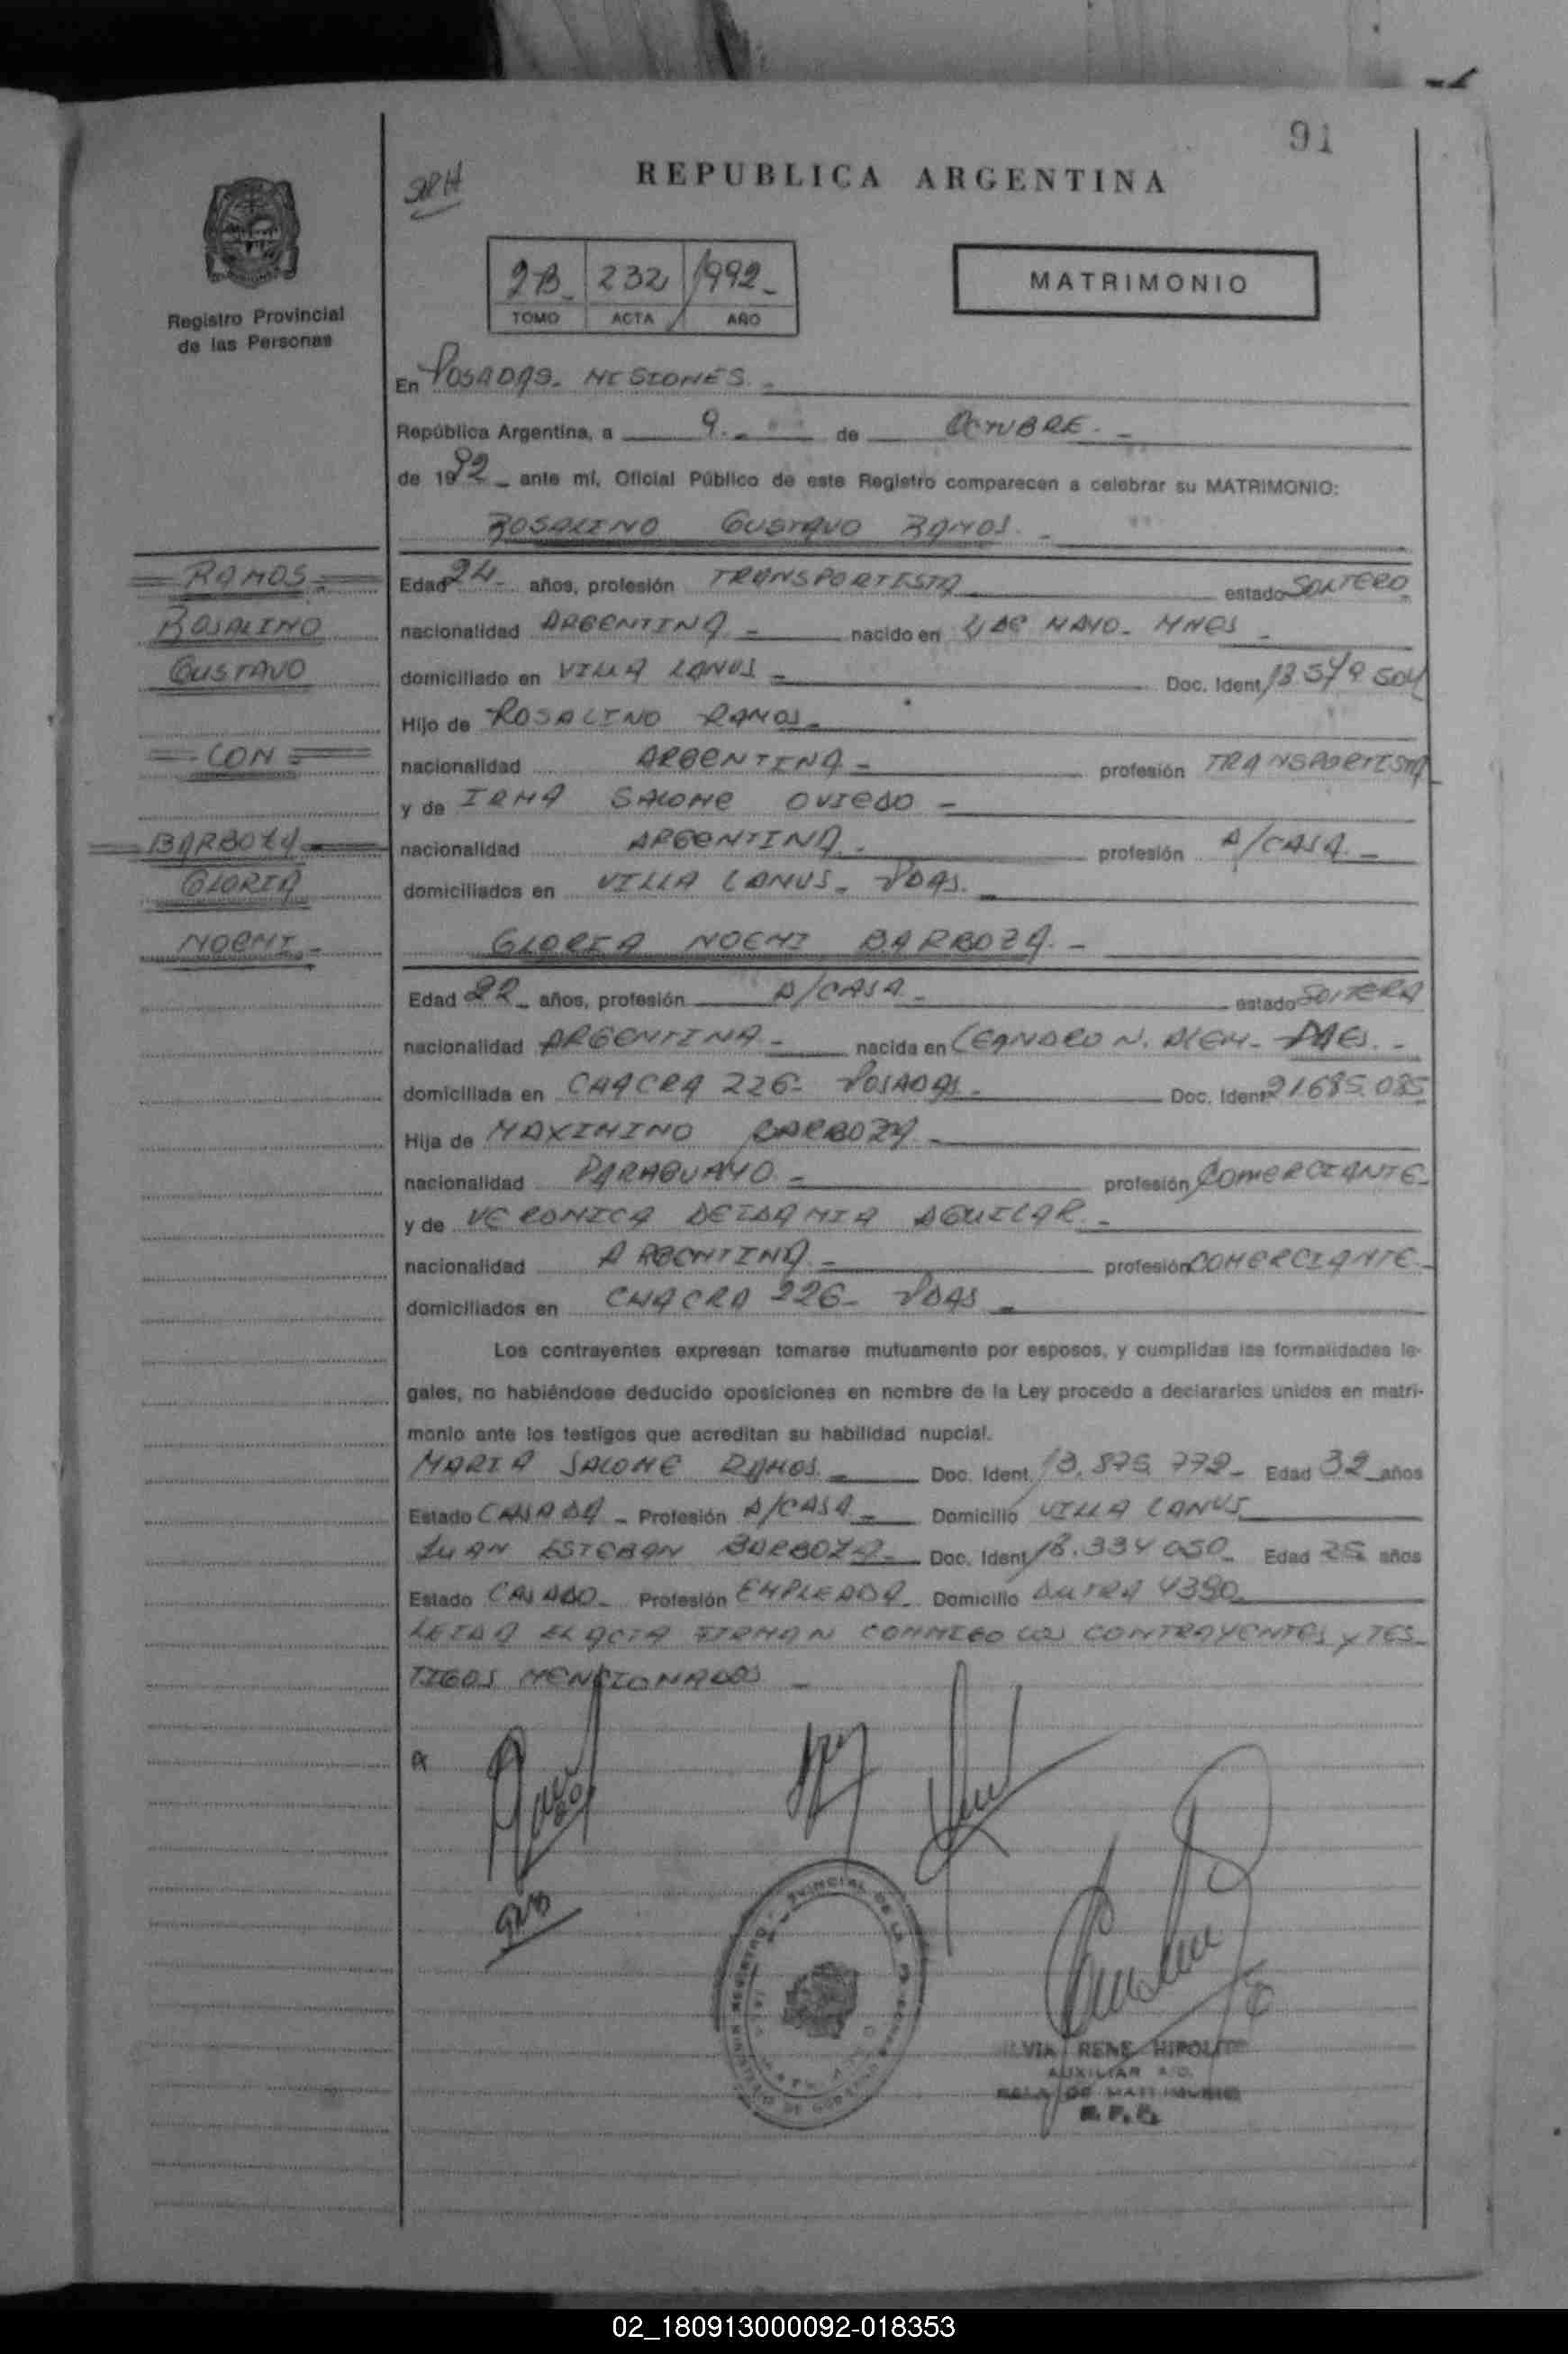 91
REPUBLICA ARGENTINA
SRH
2B_ 232 1992_
TOMO ACTA AÑO
MATRIMONIO
Registro Provincial
de las Personas
En POSADAS_ MISIONES_
República Argentina, a 9._ de OCTUBRE._
de 1992_ ante mí, Oficial Público de este Registro comparecen a celebrar su MATRIMONIO:
ROSALINO GUSTAVO RAMOS._
RAMOS
ROSALINO
GUSTAVO
CON
BARBOZA
GLORIA
NOEMI_
Edad 24_ años, profesión TRANSPORTISTA estado SOLTERO
nacionalidad ARGENTINA_ nacido en 2 DE MAYO_ MNES_
domiciliado en VILLA LANUS_ Doc. Ident.
Hijo de ROSALINO RAMOS_
nacionalidad ARGENTINA_ profesión TRANSPORTISTA_
y de IRMA SALOME OVIEDO_
nacionalidad ARGENTINA._ profesión A/CASA_
domiciliados en VILLA LANUS_ PDAS._
GLORIA NOEMI BARBOZA._
Edad 22_ años, profesión A/CASA_ estado SOLTERA
nacionalidad ARGENTINA._ nacida en LEANDRO N. ALEM_
domiciliada en CHACRA 226_ POSADAS._ Doc. Ident. 21.685.085
Hija de MAXIMINO BARBOZA_
nacionalidad PARAGUAYO._ profesión COMERCIANTE_
y de VERONICA DEIDAMIA AGUILAR_
nacionalidad ARGENTINA_ profesión COMERCIANTE._
domiciliados en CHACRA 226_ PDAS_
Los contrayentes expresan tomarse mutuamente por esposos, y cumplidas las formalidades le-
gales, no habiéndose deducido oposiciones en nombre de la Ley procedo a declararlos unidos en matri-
monio ante los testigos que acreditan su habilidad nupcial.
MARIA SALOME RAMOS._ Doc. Ident. 13.875.772_ Edad 32_ años
Estado CASADA_ Profesión A/CASA_ Domicilio VILLA LANUS
JUAN ESTEBAN BARBOZA_ Doc. Ident. 18.334.050_ Edad 25 años
Estado CASADO_ Profesión EMPLEADA_ Domicilio DUTRA 4390
LEIDA EL ACTA FIRMAN CONMIGO LOS CONTRAYENTES Y TES_
TIGOS MENCIONADOS_
RENE HIPOLIT
AUXILIAR
02_180913000092-018353